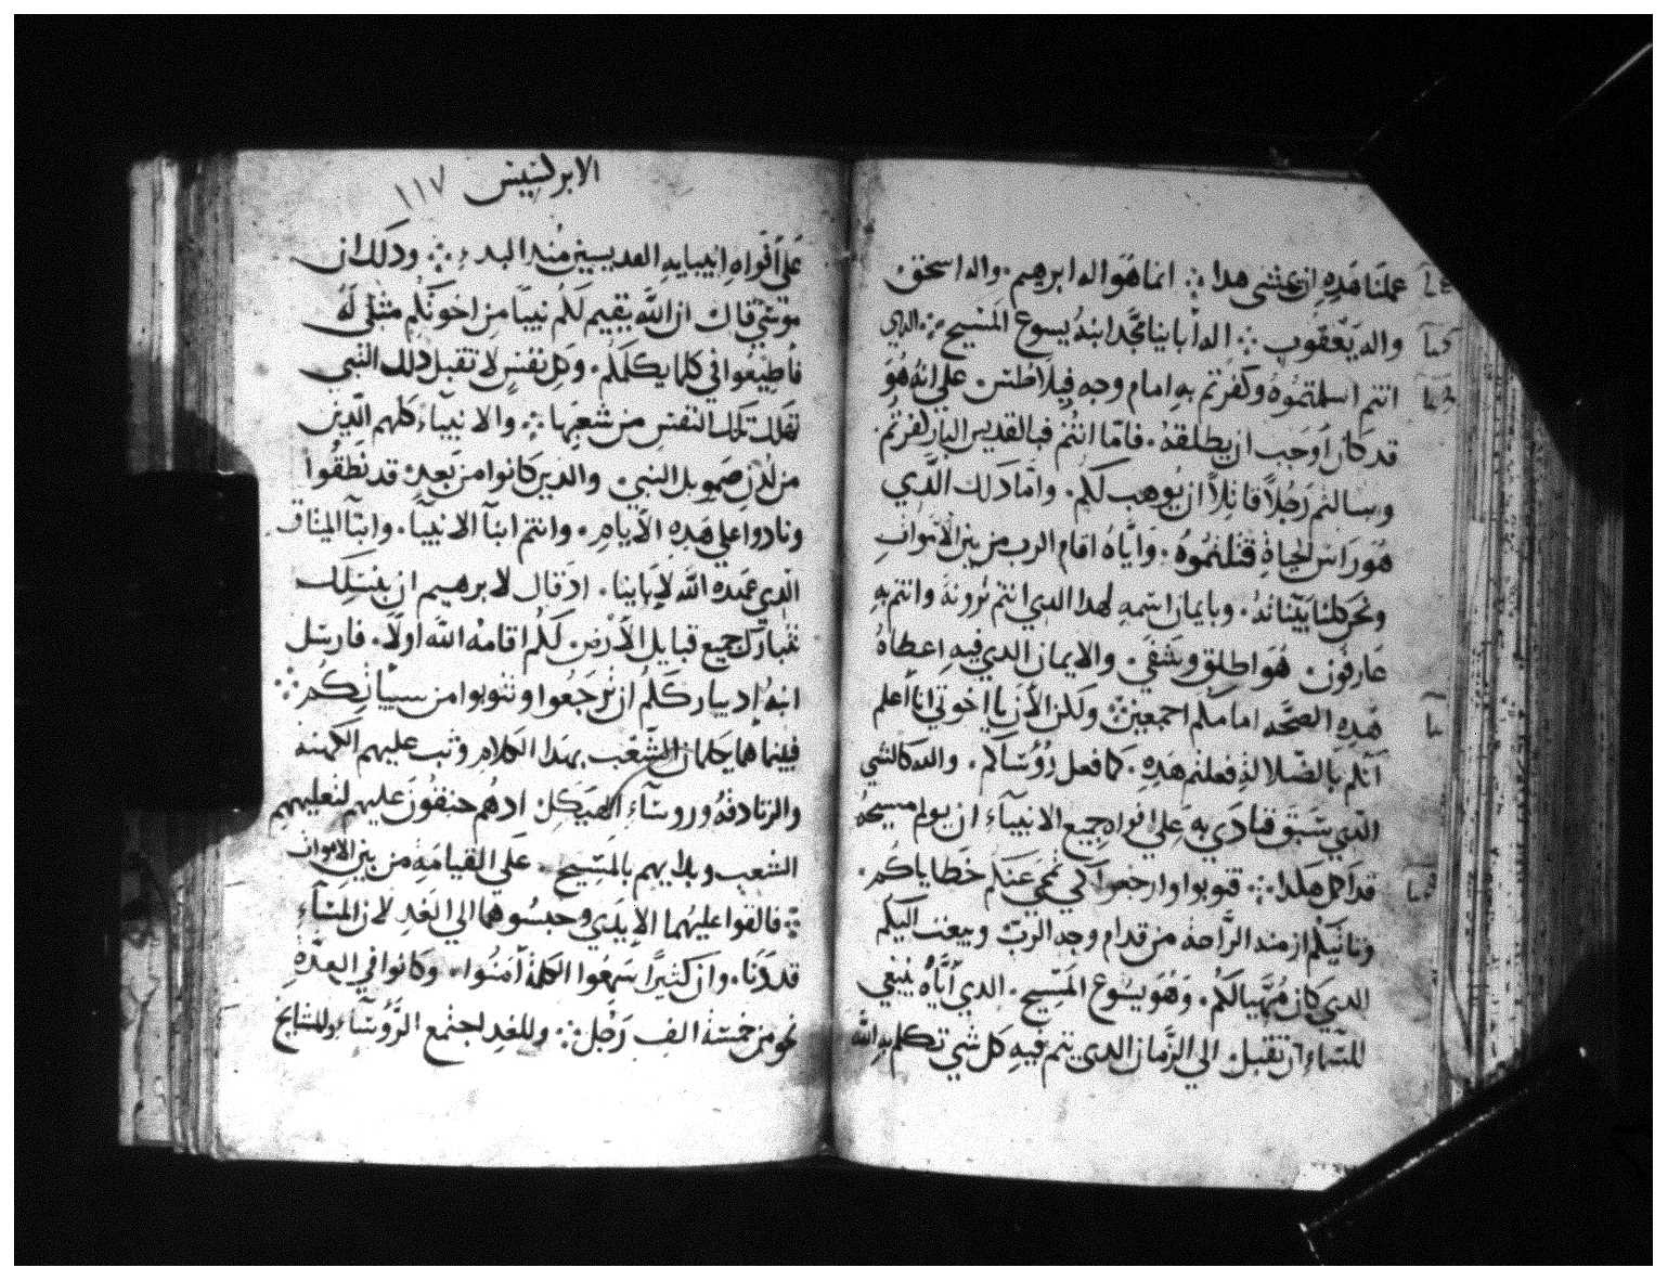 عملنا هَدِهِ ان يمشى هدا ܀ انما هَوَ اله ابرهيم. واله اسحق
واله يَعْقوب ܀ اله أباينا مجَّد ابنهُ يسوع المَسيح ܀ الدي
انتم اسلمتمُوهُ وكفرتم بهِ امام وجه فِيلاَطُس. علي انهُ هُوَ
قد كان اَوجَب ان يطلقهُ. فامّا انتُم فبالقديس البار كفرتم.
وسالتم رَجُلاً قاتِلاً ان يُوهب لكم. وامَّا دَلك الَّدِي
هُوَ رَاس الحياةِ قتلتمُوهُ. وَايَّاهُ اقام الرب من بين الاَموَاتِ
ونحن كلنا بيّناتهُ. وبايمان اسمِهِ لهدا الدي انتم ترونهُ وانتم بهِ
عَارفونَ. هُوَ اطلق وشَفَي. والايمان الدي فيهِ اعطاهُ
هَدِهِ الصحَّه امامكم اجمعين ܀ ولكن الأنَ يا اخوتي انا أعلم
انكم بالضّلالةِ فعلتم هَدِهِ. كما فعل رُؤُسَاكم. والله كالشي
الدي سَبَق فنادَي بِهِ عَلي افواه جميع الانبيآءِ ان يولم مسيحهُ
قد اكمل هكدا ܀ فتوبوا وارجعوا كي تمحَي عَنكم خَطَاياكُم.
وتاتيكم ازمنه الرَّاحه من قدام وجه الربّ ويبعَث اليكم
الدي كان مُهيَّا لكُم. وَهُوَ يسُوع المَسِّيح. الدي ايَّاهُ ينبغي
للسّماءِ ان تقبل الي الزَّمان الدي يتم فيهِ كل شي تكلم بهِ اللّه
الابركسيس ١١٧
عَلي أفوَاهِ انبيايهِ القديسين مُند البدءِ ܀ ودَلك ان
موسَي قال ان اللّه يقيم لَكُم نبيًا من اخوتكُم مثلي لَهُ
فأطِيعُوا في كلما يكلمكم. وَكل نفسٍ لا تقبل دلك النبي
تهلك تلك النفس من شعبِها ܀ والانبيآء كلهم الَّدِين
من لدُن صَمويل النبي والدين كَانوا من بَعدِه قد نَطَقُوا
ونادوا علي هَدِهِ الأيامِ. وانتم ابنآ الانبيآ. وابنآ الميثاق
الَّدِي عَهده اللّه لاَباينا. اد قال لابرهيم ان بنسلك
تتبارك جميع قبايل الاَرض. لَكُم اقامهُ اللّه اَولًا. فارسَل
ابنهُ اد يباركَكُم ان ترجَعُوا وتتوبوا من سيّيَاتكُم ܀
فبينما هما يكلمان الشَّعْب بهَدا الكلامِ وثب عليهم الكهنه
والزنادقهُ وروسَآءِ الهَيَكِل ادهُم حنقُونَ عليهم لتعليهمِ
الشعب وندايهم بالمَسِّيح. عَلي القيامَةِ من بين الاموات
܀ فالقوا عليهُما الاَيدَي وحَبسُوهما الي الغَدِ لان المَسَآءِ
قد دَنا. وان كثيرًا سَمِعُوا الكلمة آمَنُوا. وكَانوا في العِدَّةِ
نحو من خمسَة الف رَجُل ܀ وللغدِ اجتمع الرَّؤُسَآءِ والمشايخ